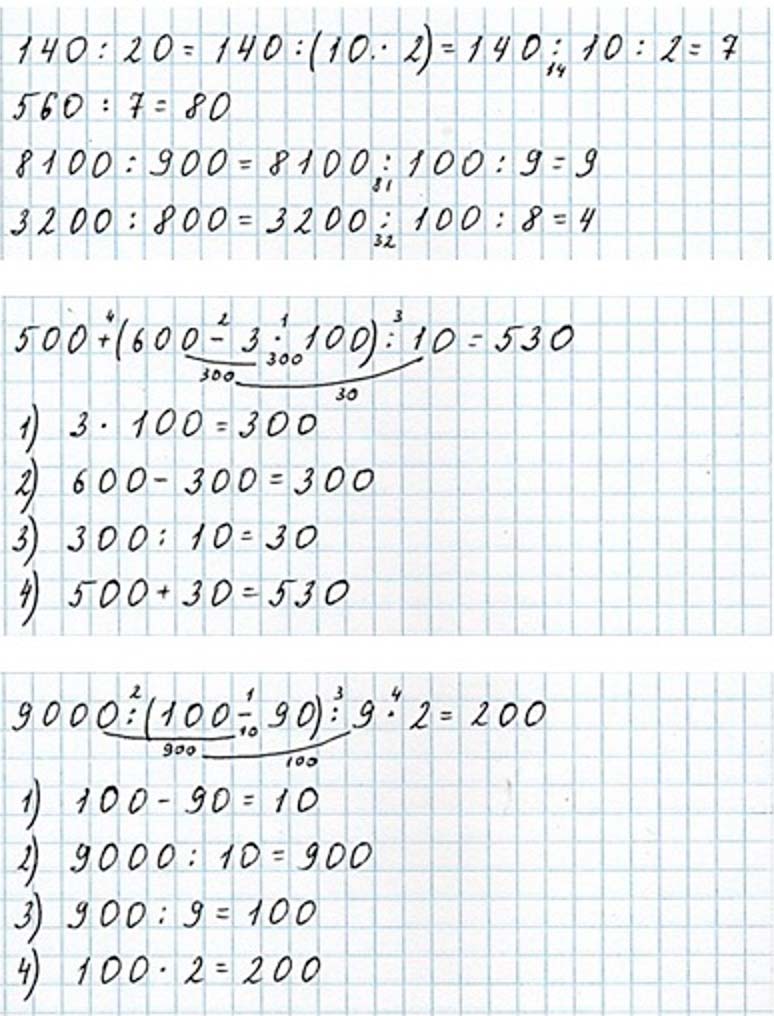 140 : 20 = 140 : (10 · 2) = 140 : 10 : 2 = 7
14
560 : 7 = 80
8100 : 900 = 8100 : 100 : 9 = 9
81
3200 : 800 = 3200 : 100 : 8 = 4
32
4 2 1 3
500 + (600 - 3 · 100) : 10 = 530
300
300
30
1) 3 · 100 = 300
2) 600 - 300 = 300
3) 300 : 10 = 30
4) 500 + 30 = 530
2 1 3 4
9000 : (100 - 90) : 9 · 2 = 200
10
900
100
1) 100 - 90 = 10
2) 9000 : 10 = 900
3) 900 : 9 = 100
4) 100 · 2 = 200